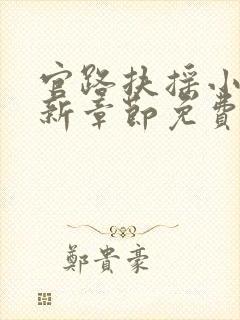 官路扶摇小
新章節免費
鄭貴豪